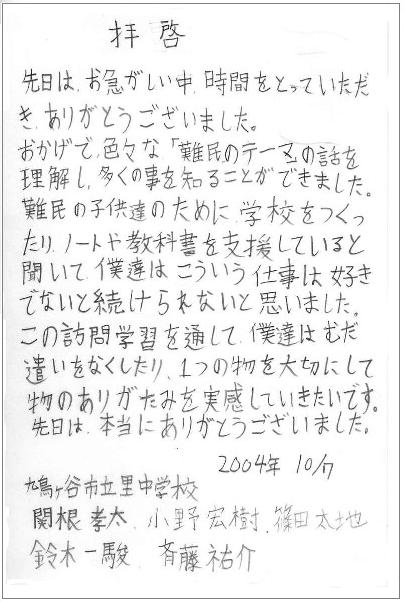 拝啓
先日は、お急がしい中、時間をとっていただ
き、ありがとうございました。
おかげで、色々な「難民のテーマ」の話を
理解し、多くの事を知ることができました。
難民の子供達のために、学校をつくっ
たり、ノートや教科書を支援していると
聞いて、僕達はこういう仕事は好き
でないと続けられないと思いました。
この訪問学習を通して、僕達はむだ
遣いをなくしたり、1つの物を大切にして
物のありがたみを実感していきたいです。
先日は、本当にありがとうございました。
2004年 10/7
鳩ヶ谷市立里中学校
関根孝太、小野宏樹、篠田太地
鈴木一駿、斉藤祐介